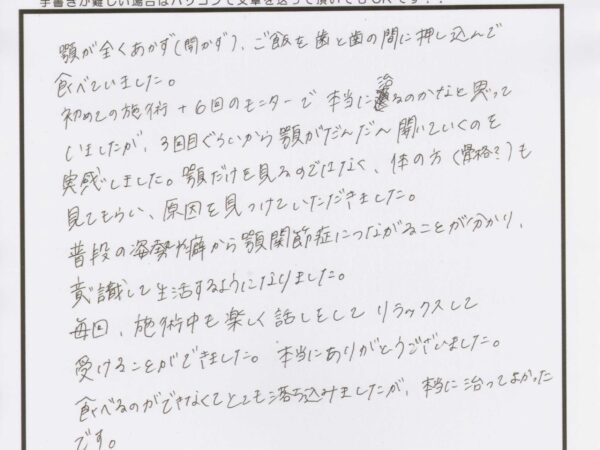 手書きが難しい場合はパソコンで文章を送って頂いてもＯＫです！！
顎が全くあかず(開かず)、ご飯を歯と歯の間に押し込んで
食べていました。
初めての施術+6回のモニターで本当に治るのかなと思って
いましたが、3回目ぐらいから顎がだんだん開いていくのを
実感しました。顎だけを見るのではなく、体の方(骨格?)も
見てもらい、原因を見つけていただきました。
普段の姿勢や癖から顎関節症につながることが分かり、
意識して生活するようになりました。
毎回、施術中も楽しく話しをして リラックスして
受けることができました。本当にありがとうございました。
食べるのができなくてとても落ち込みましたが、本当に治ってよかった
です。